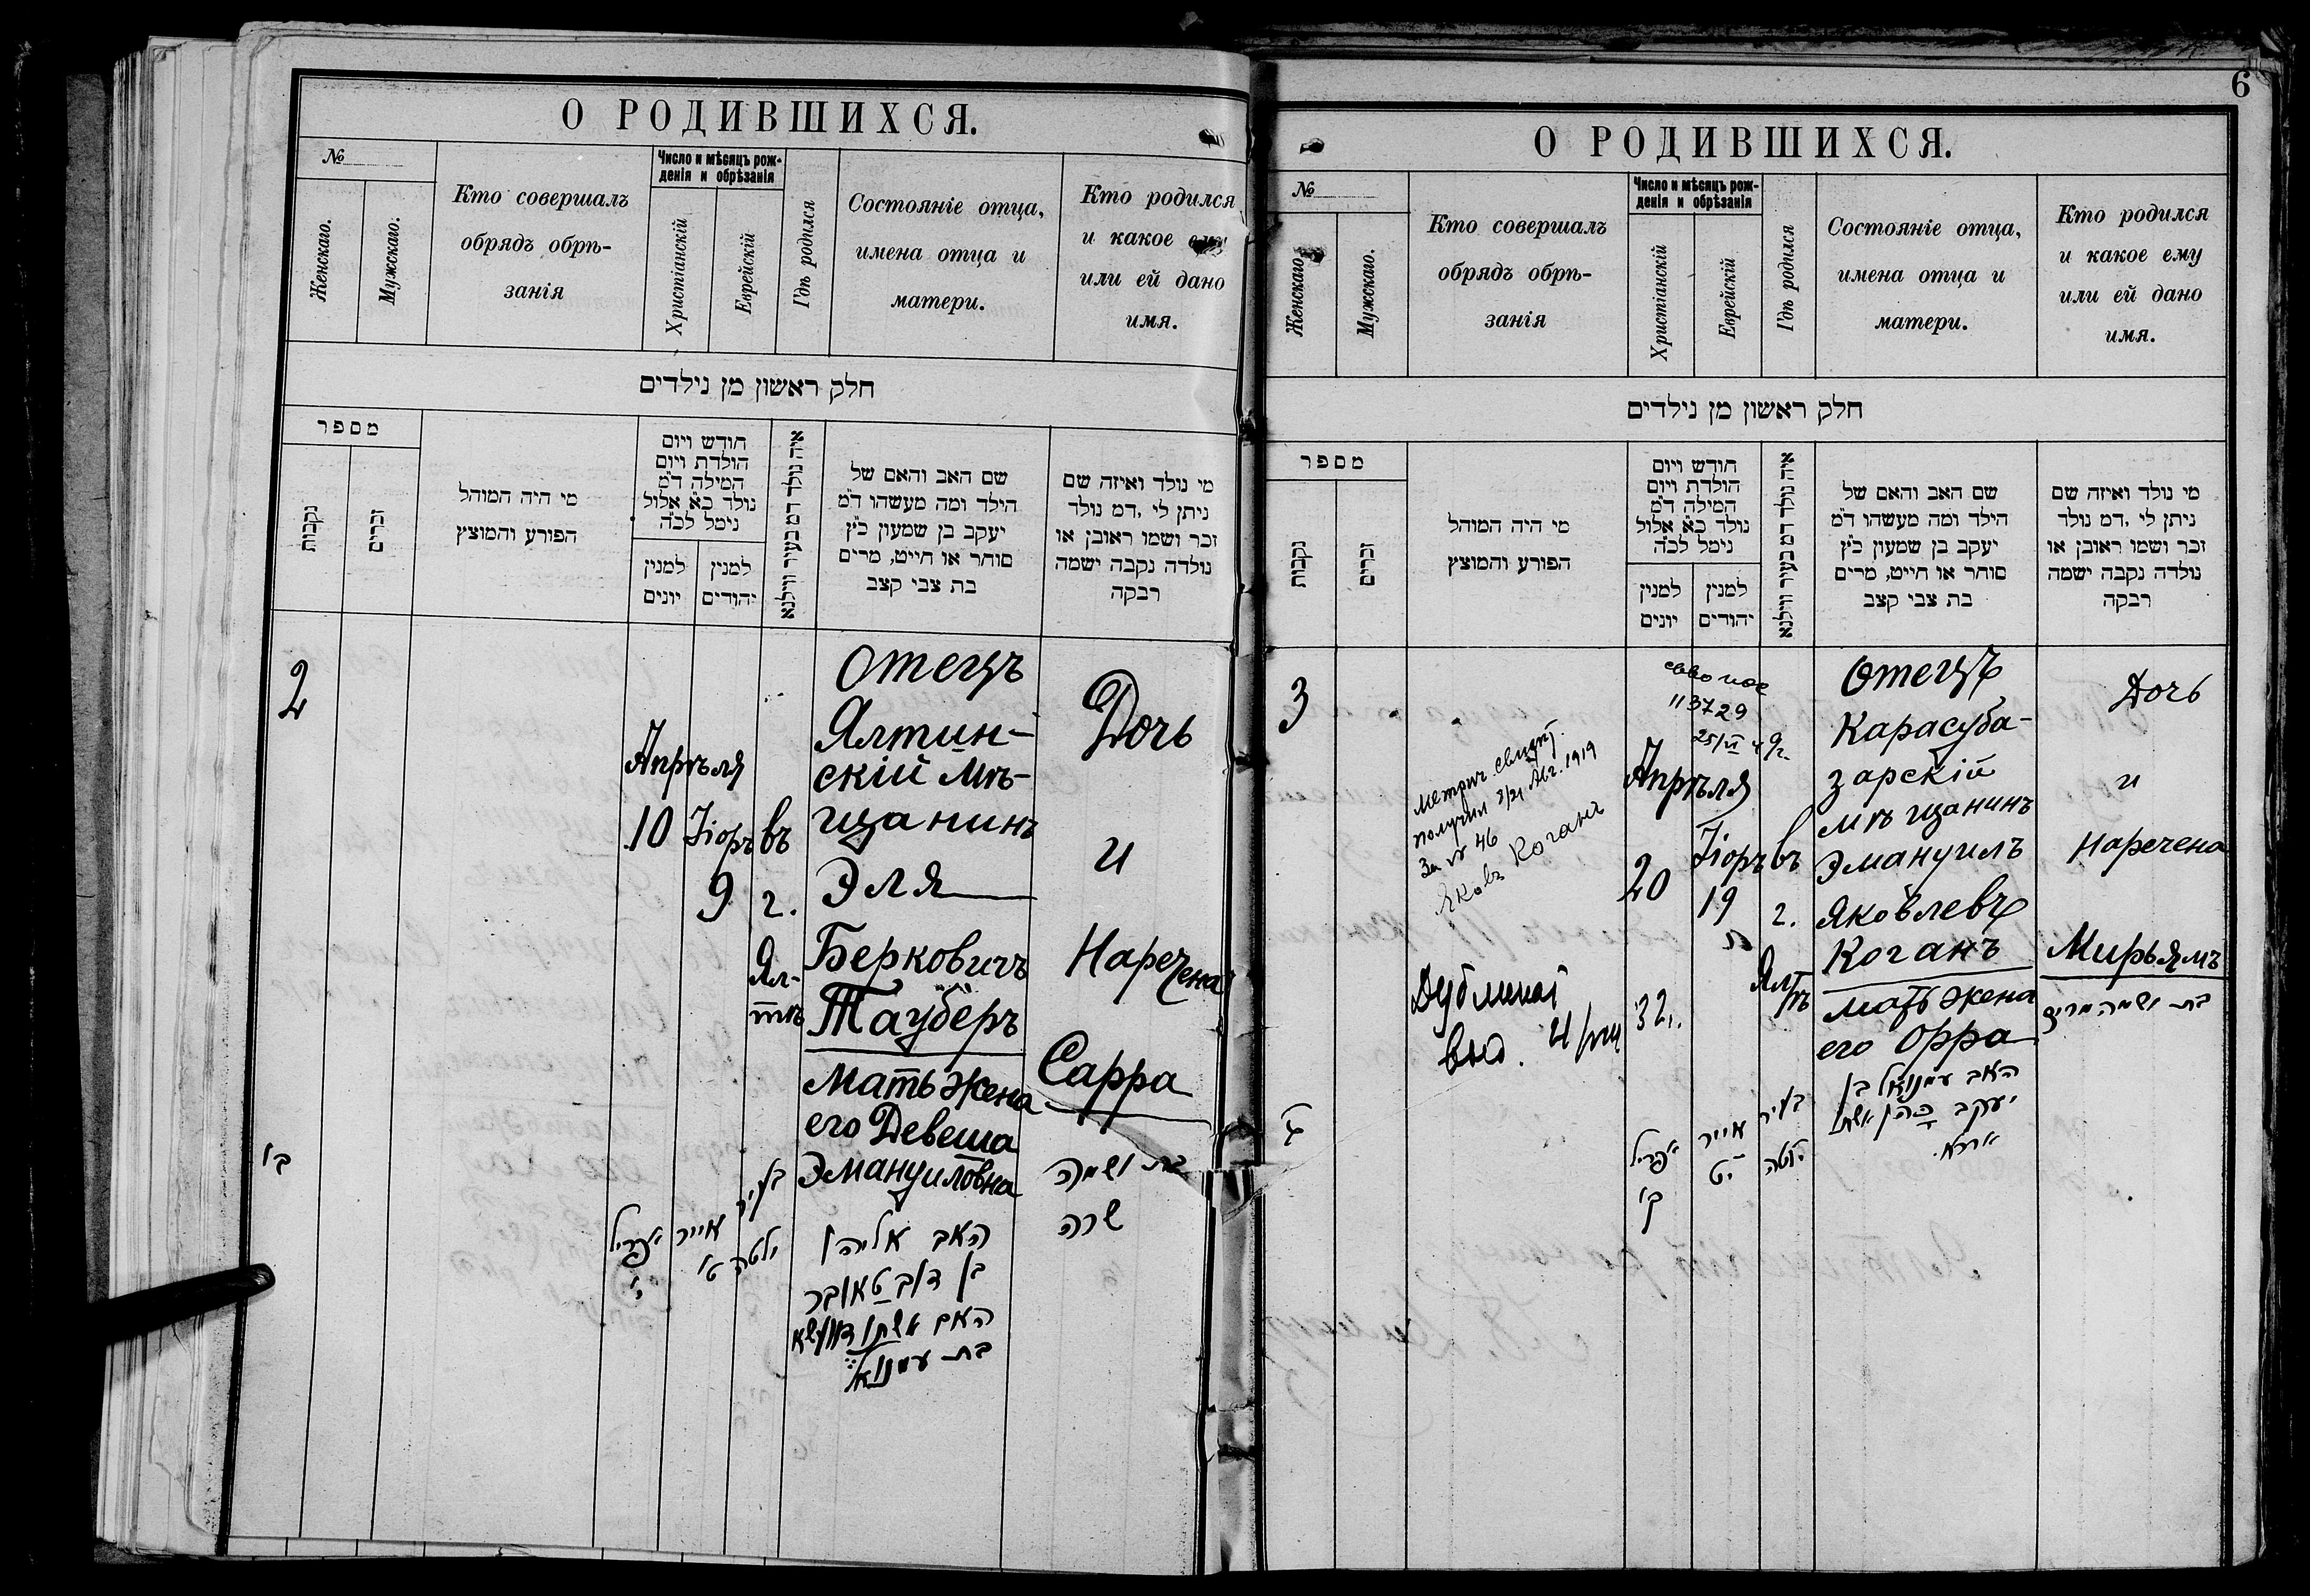 О РОДИВШИХСЯ.
№
Женскаго.
Мужскаго.
Кто совершалъ
обрядъ обрѣ-
занія
Число и мѣсяцъ рож-
денія и обрѣзанія
Христіанскій
Еврейскій
Гдѣ родился
Состояніе отца,
имена отца и
матери.
Кто родился
и какое ему
или ей дано
имя.
חלק ראשון מן נילדים
מספר
נקבות
זכרים
מי היה המוהל
הפורע והמוצץ
חודש ויום
הולדת ויום
המילה ד״מ
נולד כ״א אלול
נימל לכ״ה
למנין
יונים
למנין
יהודים
איה נולד דמ בעיר ווילנא
שם האב והאם של
הילד ומה מעשהו ד״מ
יעקב בן שמעון כ״ץ
סוחר או חייט, מרים
בת צבי קצב
מי נולד ואיזה שם
ניתן לי ,דמ נולד
זכר ושמו ראובן או
נולדה נקבה ישמה
רבקה
2
Апрѣля
10
Іюръ
9
въ
г.
Ял-
тѣ
Отецъ
Ялтин-
скій мѣ-
щанинъ
Эля
Берковичъ
Тауберъ
Мать жена
его Девеша
Эмануиловна
Дочь
и
Наречена
Сарра
ב׳
אפריל
י׳
אייר
ט׳
בעיר
ילטה
האב אליהו
בן דוב טאובר
האם אשתו דוועשא
בת עמנואל
בת ושמה
שרה
6
О РОДИВШИХСЯ.
№
Женскаго.
Мужскаго.
Кто совершалъ
обрядъ обрѣ-
занія
Число и мѣсяцъ рож-
денія и обрѣзанія
Христіанскій
Еврейскій
Гдѣ родился
Состояніе отца,
имена отца и
матери.
Кто родился
и какое ему
или ей дано
имя.
חלק ראשון מן נילדים
מספר
נקבות
זכרים
מי היה המוהל
הפורע והמוצץ
חודש ויום
הולדת ויום
המילה ד״מ
נולד כ״א אלול
נימל לכ״ה
למנין
יונים
למנין
יהודים
איה נולד דמ בעיר ווילנא
שם האב והאם של
הילד ומה מעשהו ד״מ
יעקב בן שמעון כ״ץ
סוחר או חייט, מרים
בת צבי קצב
מי נולד ואיזה שם
ניתן לי ,דמ נולד
זכר ושמו ראובן או
נולדה נקבה ישמה
רבקה
3
Метрич. свидѣт.
получил 8/21 Авг. 1919
За № 46
Яковъ Коганъ
Дубликат
выд.
32 г.
113729
25/VI
Апрѣля
20
Іюръ
19
въ
г.
Ялтѣ
Отецъ
Карасуба-
зарскій
мѣщанинъ
Эмануилъ
Яковлевъ
Коганъ
мать жена
его Орра
Дочь
и
Наречена
Мирьямъ
בת ושמה מרים
ג׳
אפריל
כ׳
אייר
י״ט
בעיר
ילטה
האב עמנואל בן
יעקב כהן אשתו
אררא